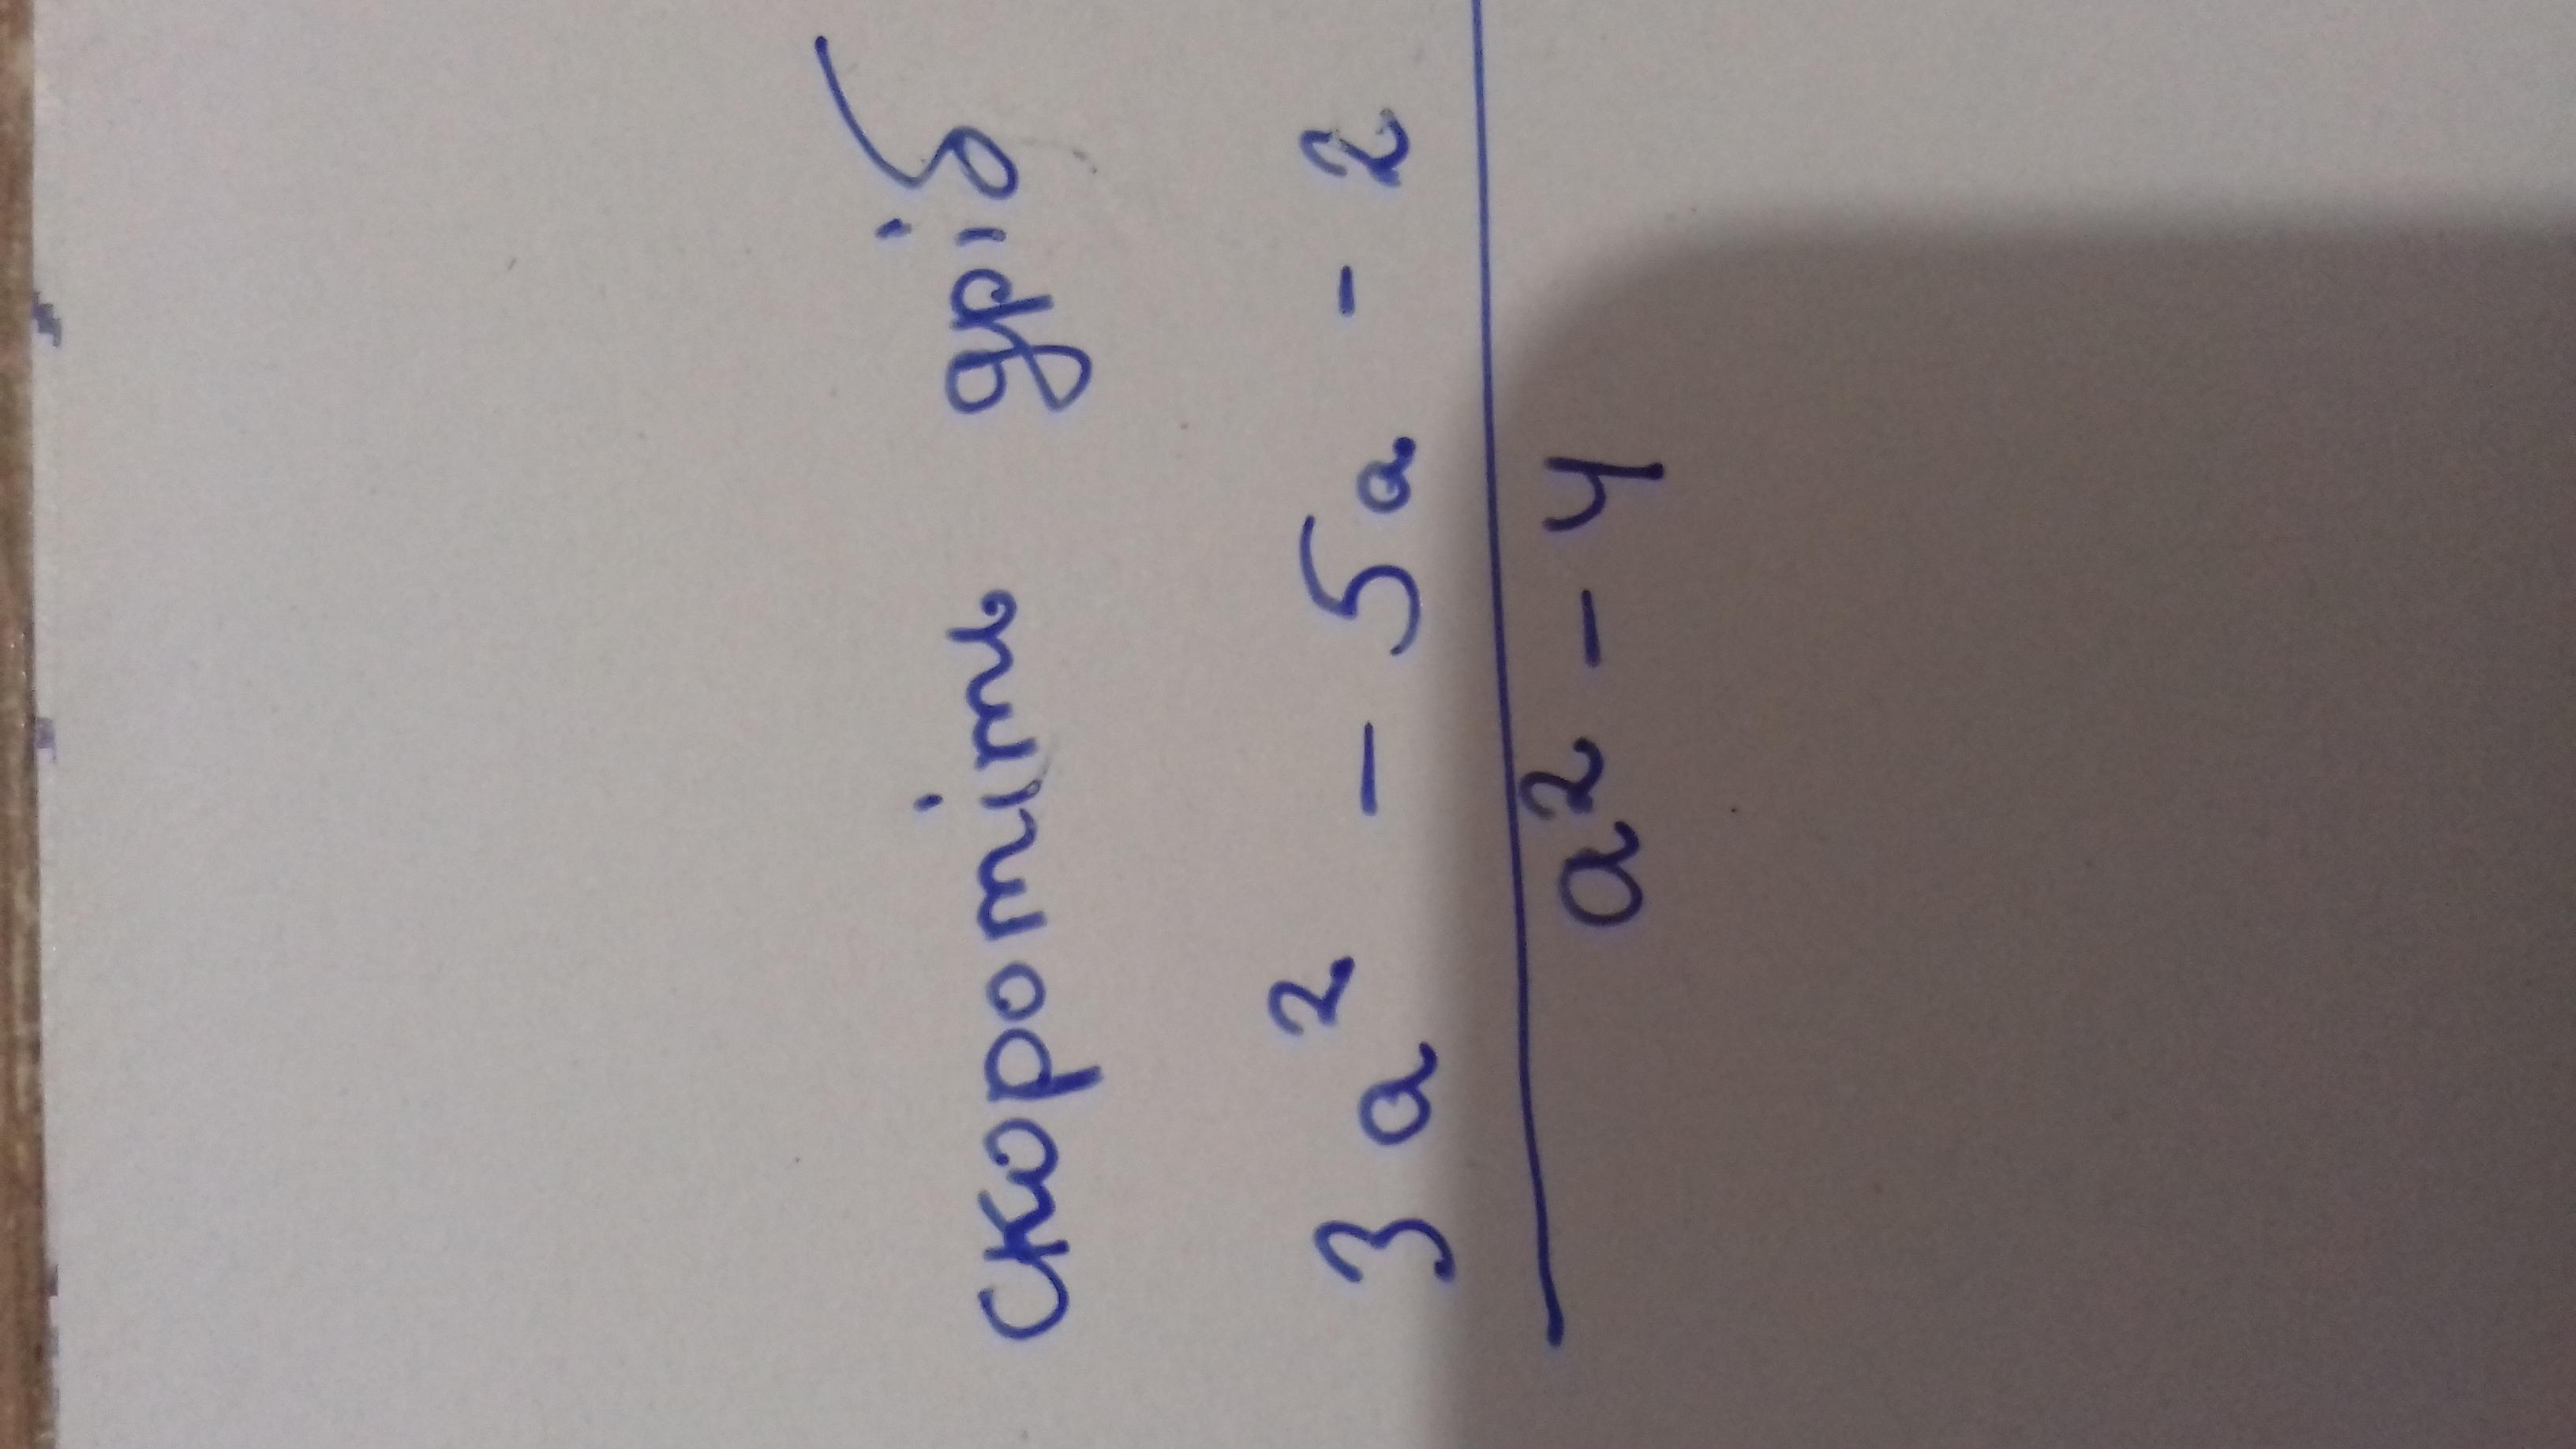 скоротіть дріб
3a² - 5a - 2
a² - 4